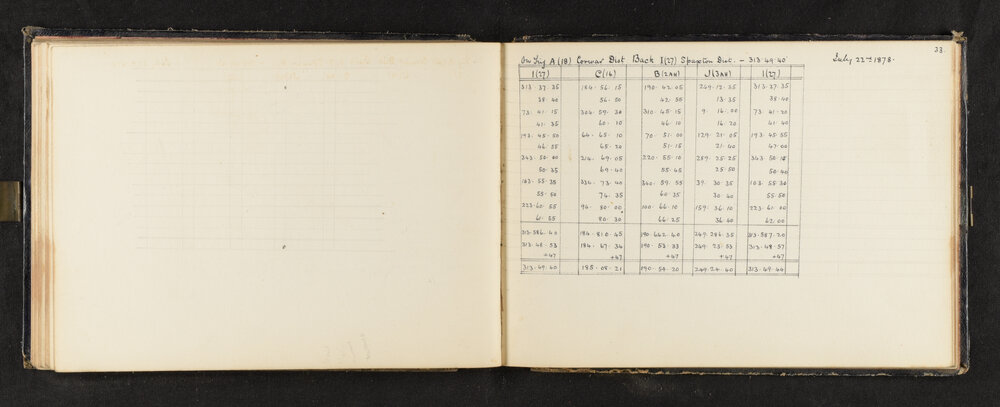 33.
On Trig A (18) Corwar Dist Back I (27) Spaxton Dist. – 313·49·40 July 22nd 1878.
I (27) C (16) B (2AN) J (3AN) I (27)
313·37·35 184·56·15 190·42·05 249·12·35 313·37·35
38·40 56·50 42·55 13·35 38·40
73·41·15 304·59·30 310·45·15 9·16·00 73·41·20
41·35 60·10 46·10 16·20 41·40
193·45·50 64·65·10 70·51·00 129·21·05 193·45·55
46·55 65·20 51·15 21·40 47·00
343·50·00 214·69·05 220·55·10 259·25·25 343·50·15
50·35 69·40 55·45 25·50 50·40
103·55·35 334·73·40 340·59·55 39·30·35 103·55·30
55·50 74·35 60·35 30·40 55·50
223·60·55 94·80·00 100·66·10 159·36·10 223·61·00
61·55 80·30 66·25 36·40 62·00
313·586·40 184·810·45 190·642·40 249·286·35 313·587·20
313·48·53 184·67·34 190·53·33 249·23·53 313·48·57
+47 +47 +47 +47 +47
313·49·40 185·08·21 190·54·20 249·24·40 313·49·44